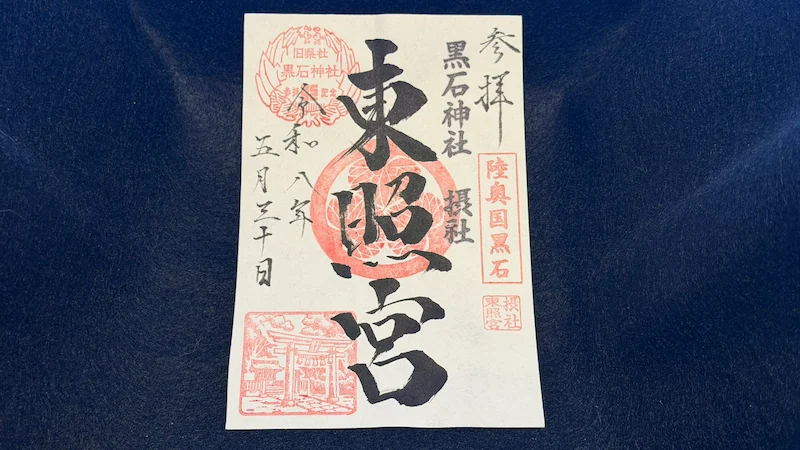 参拝
陸奥国黒石
摂社
東照宮
黒石神社 摂社
東照宮
旧県社
黒石神社
参拝記念
令和八年
五月三十日